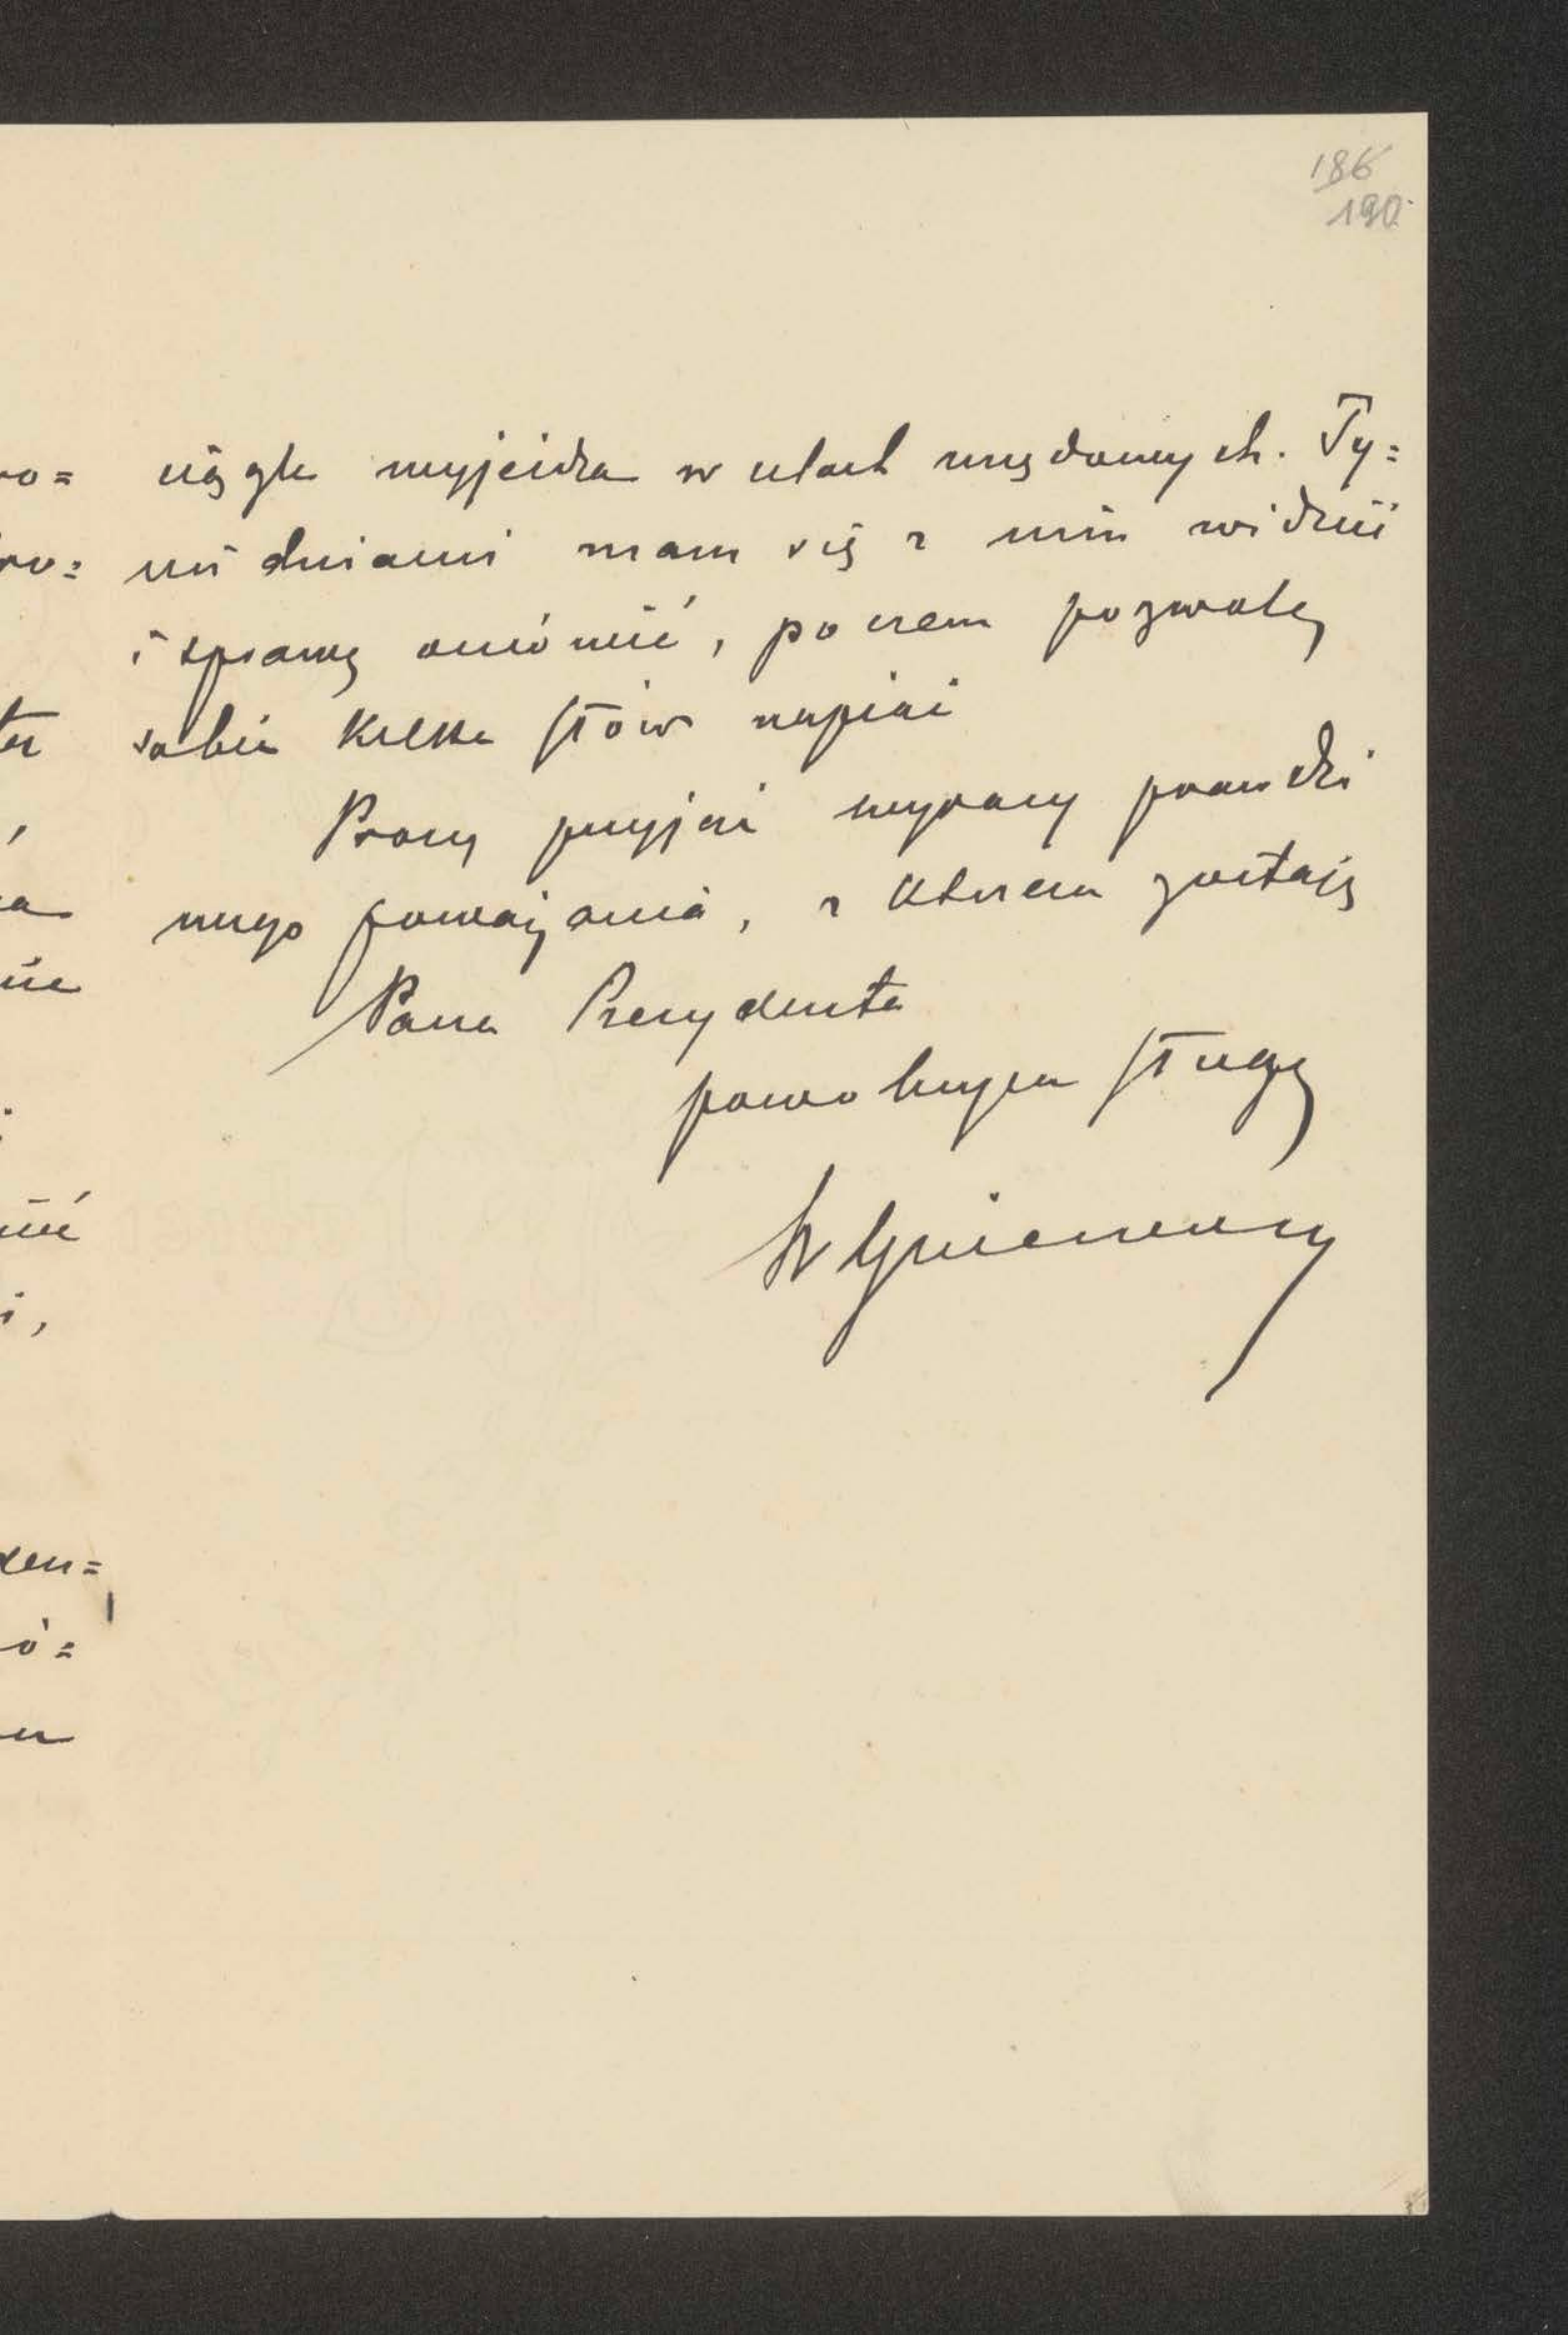 186
190.
ciągle wyjeżdża w celach urzędowych. Ty=
mi dniami mam się z nim widzieć
i sprawę omówić, po czem pozwolę
sobie kilka słów napisać
Proszę przyjąć wyrazy prawdzi
wego poważania, z którem zostaję
Pana Prezydenta
powolnym sługą
ro=
ro=
ter
na
nie
den=
ó=